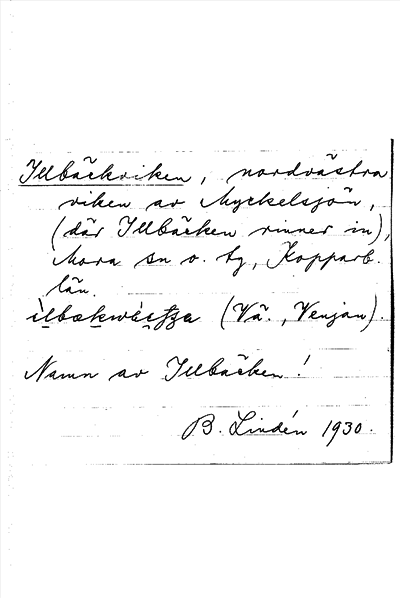 Illbäckviken, nordvästra
viken av Myckelsjön,
(där Illbäcken rinner in),
Mora sn o. tg, Kopparb.
län.
(Vä., Venjan).
Namn av Illbäcken!
B. Lindén 1930.